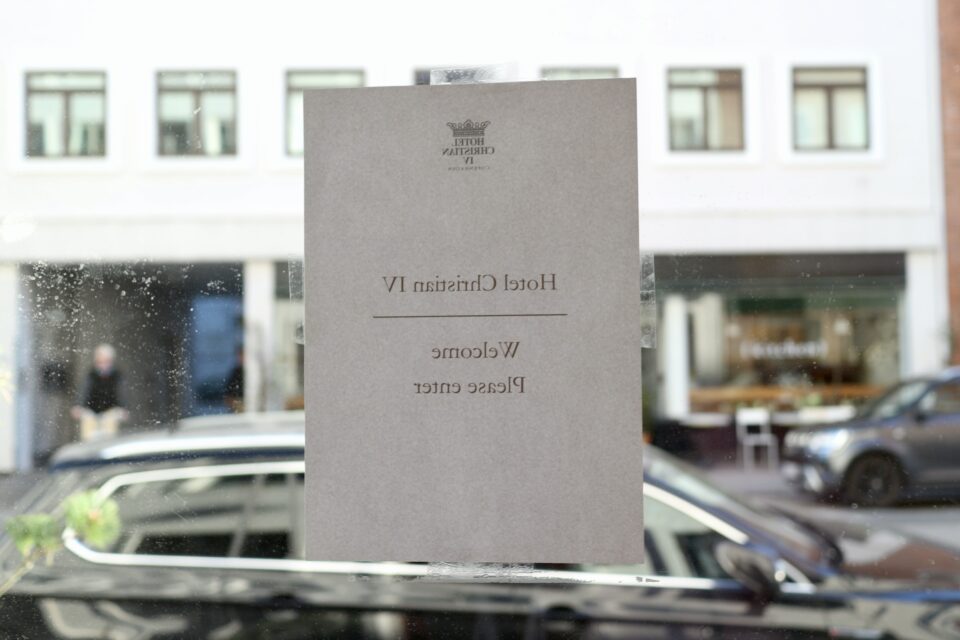 HOTEL
CHRISTIAN
IV
COPENHAGEN
Hotel Christian IV
Welcome
Please enter